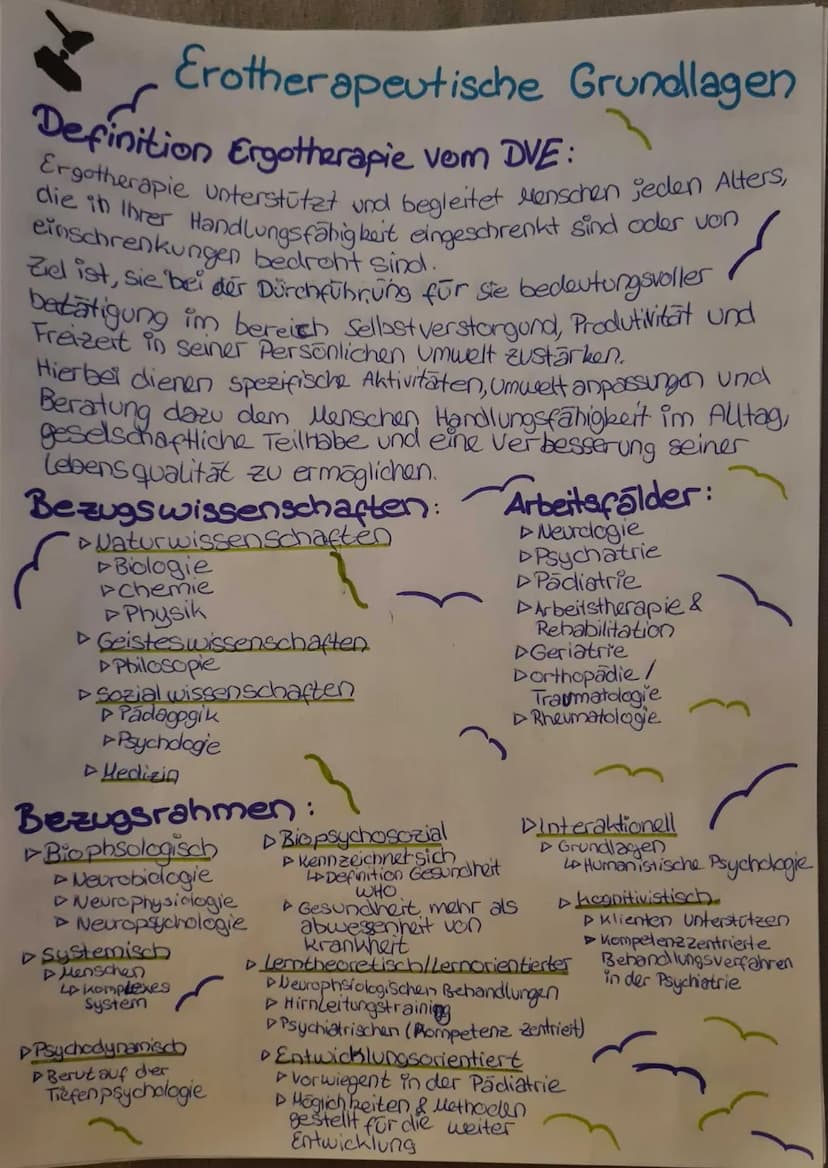 Erotherapeutische Grundlagen
Definition Ergotherapie vom DVE:
Ergotherapie unterstützt und begleitet Menschen jeden Alters,
die in Ihrer Handlungsfähigkeit eingeschrenkt sind oder von
einschrenkungen bedroht sind.
Ziel ist, sie bei der Dürchführüng für sie bedeutungsvoller
betätigung im bereich Selbstverstorgund, Produtivität und
Freizeit in seiner Persönlichen Umwelt zustärken.
Hierbei dienen spezifische Aktivitäten, Umweltanpassungen und
Beratung dazu dem Menschen Handlungsfähigkeit im Alltag,
geselschaftliche Teilhabe und eine Verbesserung seiner
Lebensqualität zu ermöglichen.
Bezugswissenschaften:
▷ Naturwissenschaften
▷ Biologie
▷ Chemie
▷ Physik
▷ Geisteswissenschaften
▷ Philosopie
▷ Sozialwissenschaften
▷ Pädagogik
▷ Psychologie
▷ Medizin
Arbeitsfälder:
▷ Neurologie
▷ Psychatrie
▷ Pädiatrie
▷ Arbeitstherapie &
Rehabilitation
▷ Geriatrie
▷ orthopädie /
Traumatologie
▷ Rheumatologie
Bezugsrahmen:
▷ Biophsologisch
▷ Neurobiologie
▷ Neurophysiologie
▷ Neuropsychologie
▷ Systemisch
▷ Menschen
↳ komplexes
System
▷ Psychodynamisch
▷ Berut auf der
Tiefenpsychologie
▷ Biopsychosozial
▷ Kennzeichnet sich
↳ Definition Gesundheit
WHO
▷ Gesundheit mehr als
abwessenheit von
Krankheit
▷ Lerntheoretisch/Lernorientierter
▷ Neurophsiologischen Behandlungen
▷ Hirnleitungstraining
▷ Psychiatrischen (Kompetenz Zentriert)
▷ Entwicklungsorientiert
▷ Vorwiegent in der Pädiatrie
▷ Möglichkeiten & Methoden
gestellt für die weiter
Entwicklung
▷ Interaktionell
▷ Grundlagen
↳ Humanistische Psychologie
▷ kognitivistisch
▷ Klienten unterstützen
▷ Kompetenzzentrierte
Behandlungsverfahren
in der Psychiatrie